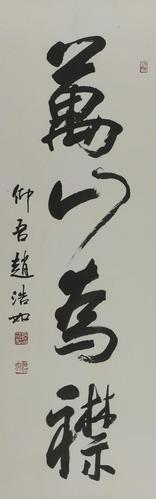 萬山為襟
仲吾趙浩如